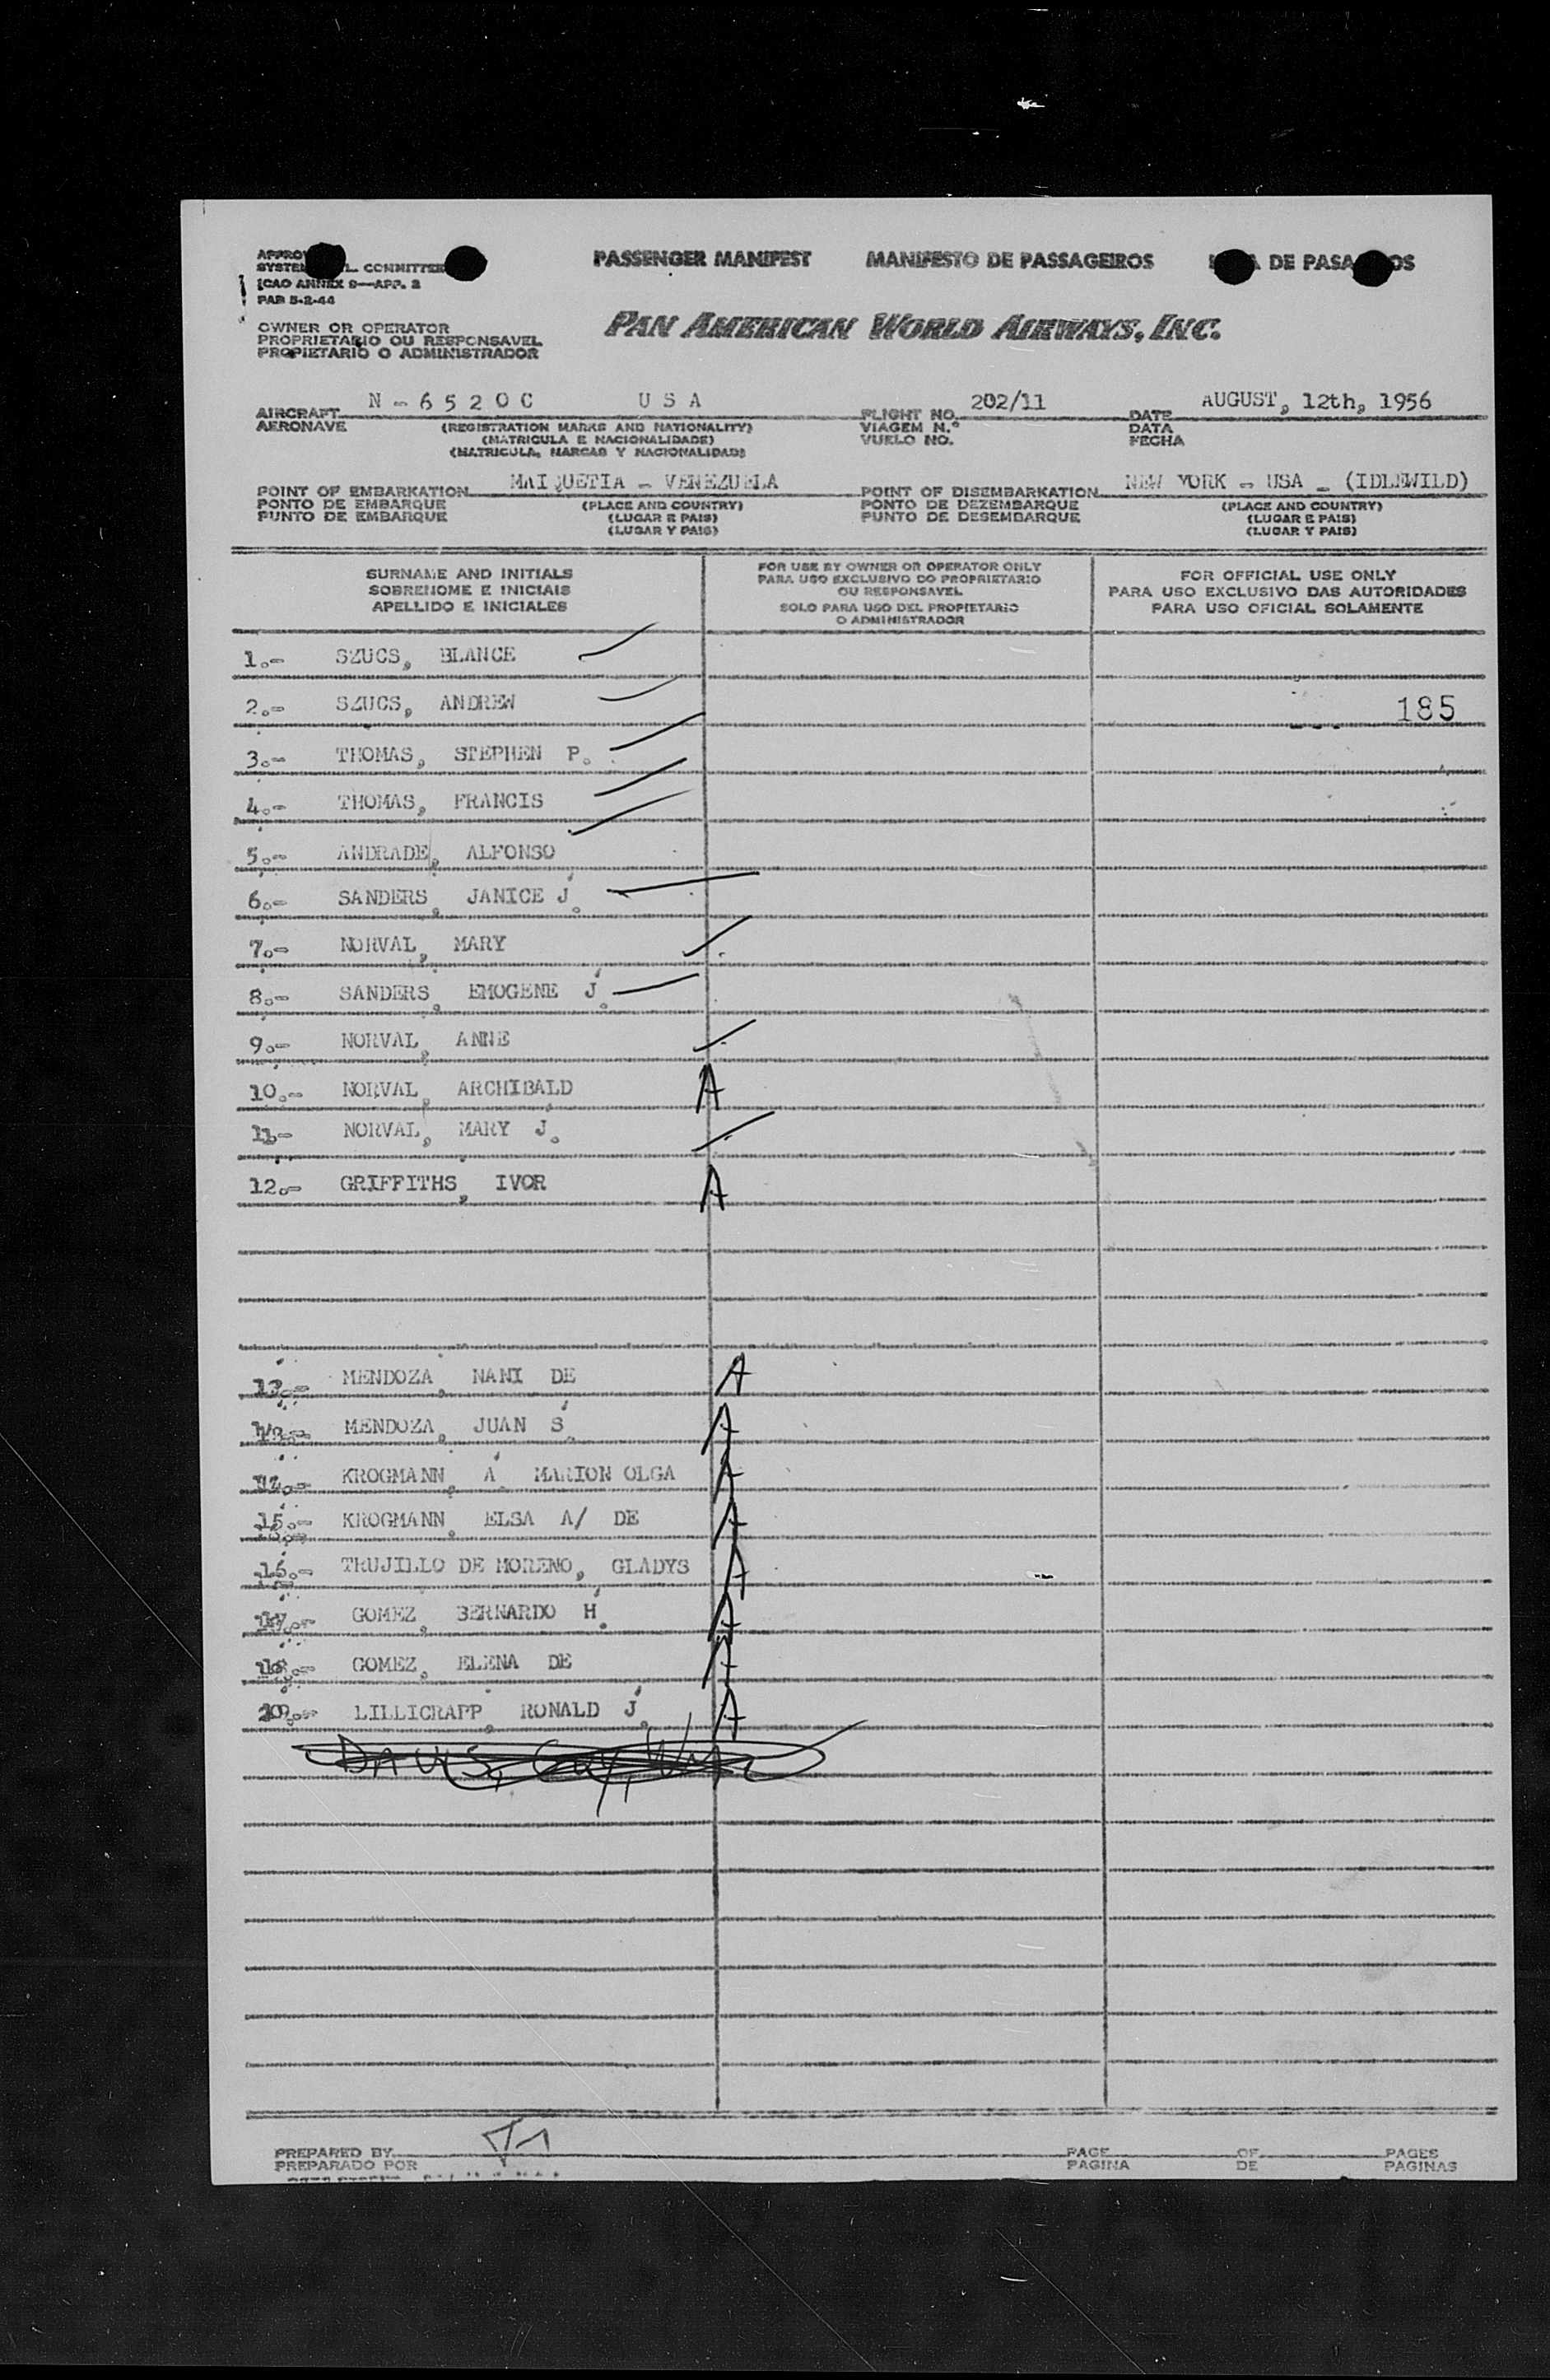 PASSENGER MANIFEST MANIFESTO DE PASSAGEIROS DE
COMMITTEE
ICAO ANNEX 9—APP. 2
PAB 5-2-44
PAN AMERICAN WORLD AIRWAYS, INC.
OWNER OR OPERATOR
PROPRIETARIO OU RESPONSAVEL
PROPIETARIO O ADMINISTRADOR
AIRCRAFT N - 6 5 2 0 C U S A FLIGHT NO. 202/11 DATE AUGUST, 12th, 1956
AERONAVE (REGISTRATION MARKS AND NATIONALITY) VIAGEM N.º DATA
(MATRICULA E NACIONALIDADE) VUELO NO. FECHA
(MATRICULA, MARCAS Y NACIONALIDAD)
POINT OF EMBARKATION MAIQUETIA - VENEZUELA POINT OF DISEMBARKATION NEW YORK - USA - (IDLEWILD)
PONTO DE EMBARQUE (PLACE AND COUNTRY) PONTO DE DEZEMBARQUE (PLACE AND COUNTRY)
PUNTO DE EMBARQUE (LUGAR E PAIS) PUNTO DE DESEMBARQUE (LUGAR E PAIS)
(LUGAR Y PAIS) (LUGAR Y PAIS)
SURNAME AND INITIALS
SOBRENOME E INICIAIS
APELLIDO E INICIALES
FOR USE BY OWNER OR OPERATOR ONLY
PARA USO EXCLUSIVO DO PROPRIETARIO
OU RESPONSAVEL
SOLO PARA USO DEL PROPIETARIO
O ADMINISTRADOR
FOR OFFICIAL USE ONLY
PARA USO EXCLUSIVO DAS AUTORIDADES
PARA USO OFICIAL SOLAMENTE
1.- SZUCS, BLANCE
2.- SZUCS, ANDREW 185
3.- THOMAS, STEPHEN P.
4.- THOMAS, FRANCIS
5.- ANDRADE, ALFONSO
6.- SANDERS, JANICE J.
7.- NORVAL, MARY
8.- SANDERS, EMOGENE J.
9.- NORVAL, ANNE
10.- NORVAL, ARCHIBALD A
11- NORVAL, MARY J.
12.- GRIFFITHS, IVOR A
13.- MENDOZA, NANI DE A
MENDOZA, JUAN S. A
KROGMANN, A. MARION OLGA A
15.- KROGMANN, ELSA A/ DE A
16.- TRUJILLO DE MORENO, GLADYS A
17.- GOMEZ, BERNARDO H. A
18.- GOMEZ, ELENA DE A
LILLICRAPP, RONALD J. A
DAVIS,
PREPARED BY PAGE OF PAGES
PREPARADO POR PAGINA DE PAGINAS